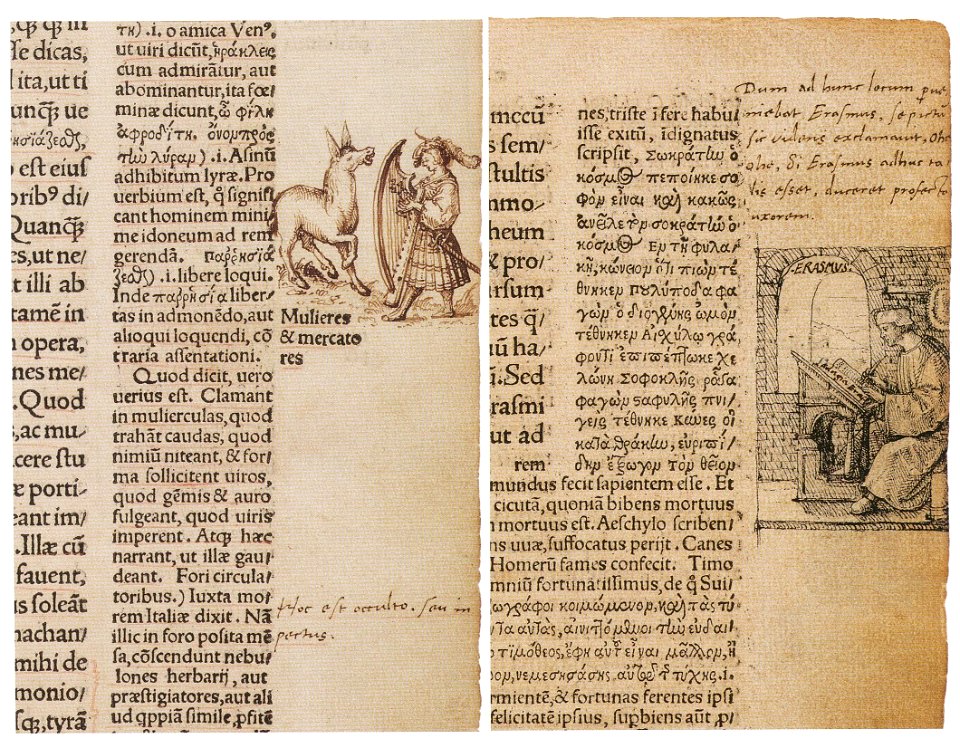 se dicas,
ita, ut ti
unq̃ ue
est eius
orib⁹ di/
Quanq̃
es, ut ne/
t illi ab
tamē in
opera,
nes me/
. Quod
s, ac mu/
cere stu
æ porti/
eant im/
. Illæ cū
fauent,
us soleāt
nachan/
mihi de
monio/
sq;, tyrā
τη) .i. o amica Ven⁹,
ut uiri dicūt, ἡράκλεις
cum admirātur, aut
abominantur, ita fœ/
minæ dicunt, ὦ φίλη
ἀφροδίτη. ὄνος πρὸς
τὴν λύραν) .i. Asinū
adhibitum lyræ. Pro
uerbium est, q̃ signifi
cant hominem mini/
me idoneum ad rem
gerendā. παῤῥησιά
ζεσθ) .i. libere loqui.
Inde παῤῥησία liber/
tas in admonēdo, aut
alioqui loquendi, cō
traria assentationi.
Quod dicit, uero
uerius est. Clamant
in mulierculas, quod
trahāt caudas, quod
nimiū niteant, & for/
ma sollicitent uiros,
quod gēmis & auro
fulgeant, quod uiris
imperent. Atq; hæc
narrant, ut illæ gau/
deant. Fori circula/
toribus.) Iuxta mo/
rem Italiæ dixit. Nā
illic in foro posita mē
sa, cōscendunt nebu/
lones herbarij, aut
præstigiatores, aut ali
ud qppiā simile, pfitē
Mulieres
& mercato
res
Hoc est occulto. seu in
pectus.
mccū
s sem/
stultis
mmo/
heum
& pro/
rsum/
tes q̃/
uū ha/
. Sed
rasmi
ut ad
rem
nes, triste ī fere habu/
isse exitū, īdignatus
scripsit, Σωκράτην ὁ
κόσμος πεποίηκε σο
φὸν εἶναι καὶ κακῶς
ἀνεῖλε τὸν σωκράτην ὁ
κόσμος Εν τῇ φυλα/
κῇ, κώνειον ὅτι πιὼν τέ
θνηκεν πολύποδα φα
γὼν ὁ διογένης ὠμὸν
τέθνηκεν Αἰσχύλῳ γρά
φοντι ἐπιπέπτωκε χε
λώνη Σοφοκλῆς ῥᾶγα
φαγὼν σταφυλῆς πνι/
γεὶς τέθνηκε Κύνες οἱ
κατὰ θράκην, εὐριπί/
δην ἔτρωγον τὸν θεῖον
mundus fecit sapientem esse. Et
cicutā, quoniā bibens mortuus
mortuus est. Aeschylo scriben/
ns uuæ, suffocatus perijt. Canes
Homerū fames confecit. Timo
mniū fortunatissimus, de q̃ Sui/
ωγράφοι κοιμώμενον, καὶ τὰς τύ/
τιμόθεος, ἔφη
τύχης .i.
rmientē, & fortunas ferentes ipsi
felicitatē ipsius, supbiens aūt p/
Dum ad hunc locum pue
niebat Erasmus, se pictū
sic videns exclamavit, Ohe
ohe, si Erasmus adhuc ta
lis esset, duceret profecto
uxorem.
ERASMVS